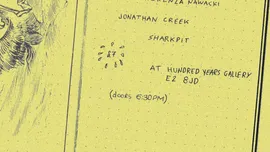 NAWACKI
JONATHAN CREEK
SHARKPIT
£7
AT HUNDRED YEARS GALLERY
E2 8JD
(doors 6:30PM)